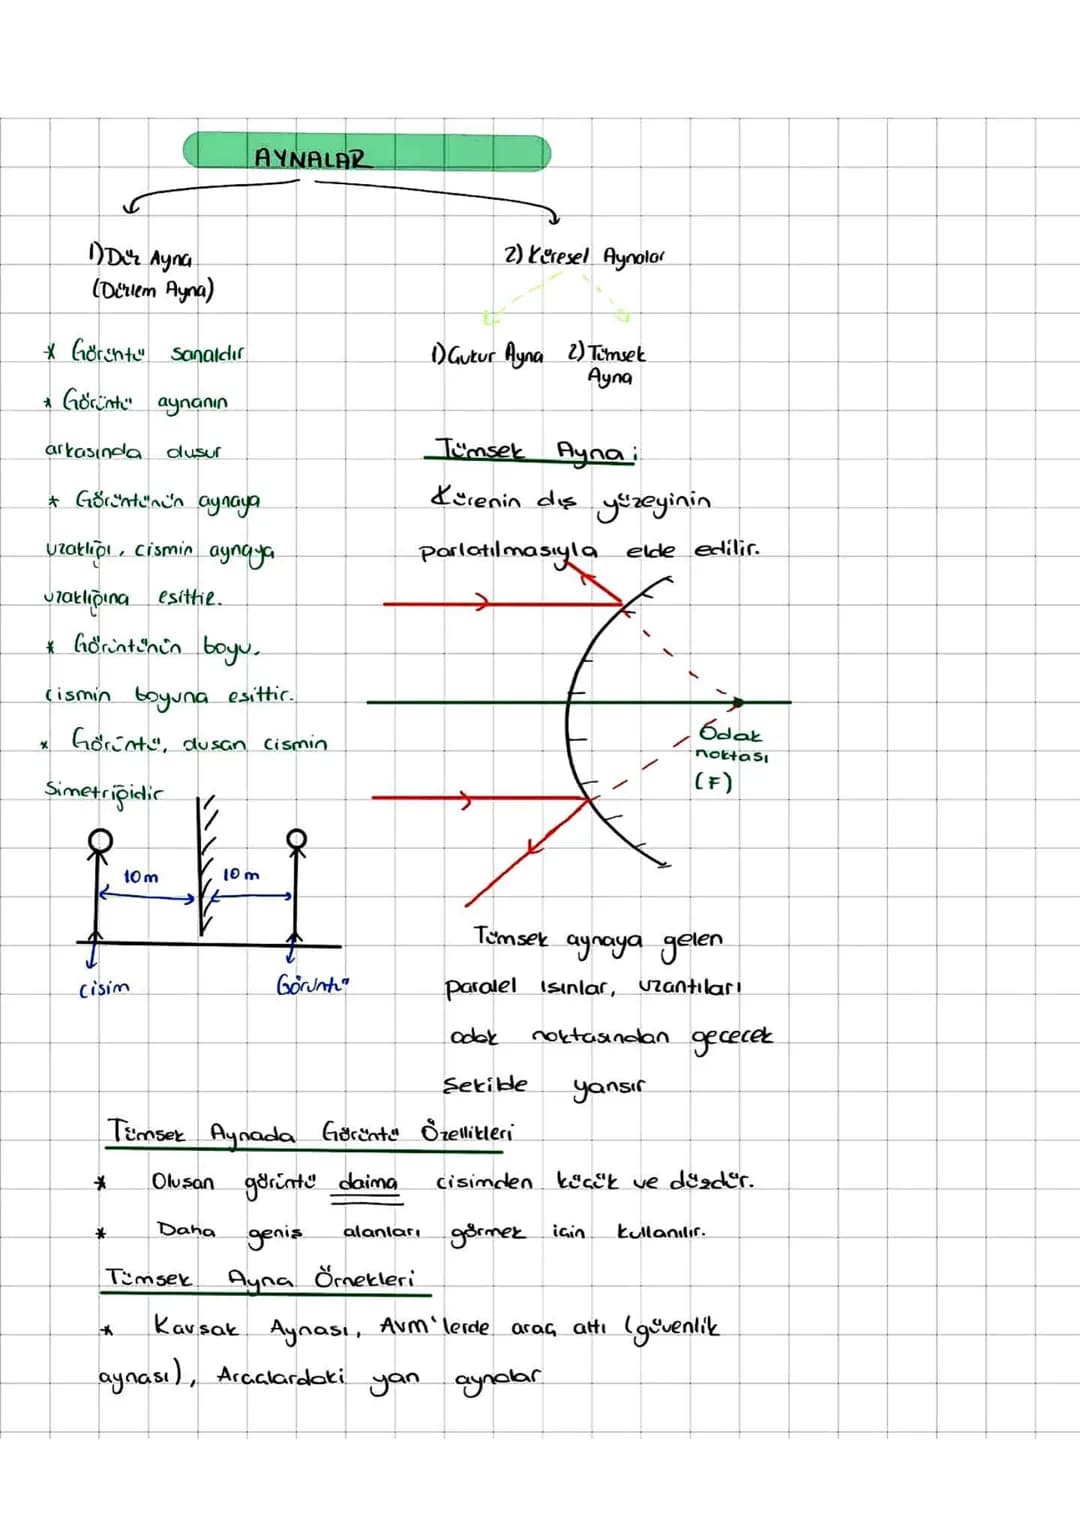 AYNALAR
1) Düz Ayna
(Düzlem Ayna)
* Görüntü sanaldır
* Görüntü aynanın
arkasında oluşur
* Görüntünün aynaya
uzaklığı, cismin aynaya
uzaklığına eşittir.
* Görüntünün boyu,
cismin boyuna eşittir.
* Görüntü, dusan cismin
Simetriğidir
10m
10m
cisim
Görüntü
2) Küresel Aynalar
1) Çukur Ayna 2) Tümsek
Ayna
Tümsek Ayna:
Kürenin dış yüzeyinin
parlatılmasıyla elde edilir.
Odak
noktası
(F)
Tümsek aynaya gelen
paralel ışınlar, uzantıları
odak noktasından geçecek
Şekilde yansır
Tümsek Aynada Görüntü Özellikleri
* Olusan görüntü daima cisimden küçük ve düzdür.
* Daha geniş alanları görmek için kullanılır.
Tümsek Ayna Örnekleri
* Kavşak Aynası, Avm'lerde araç altı (güvenlik
aynası), Araçlardaki yan aynalar